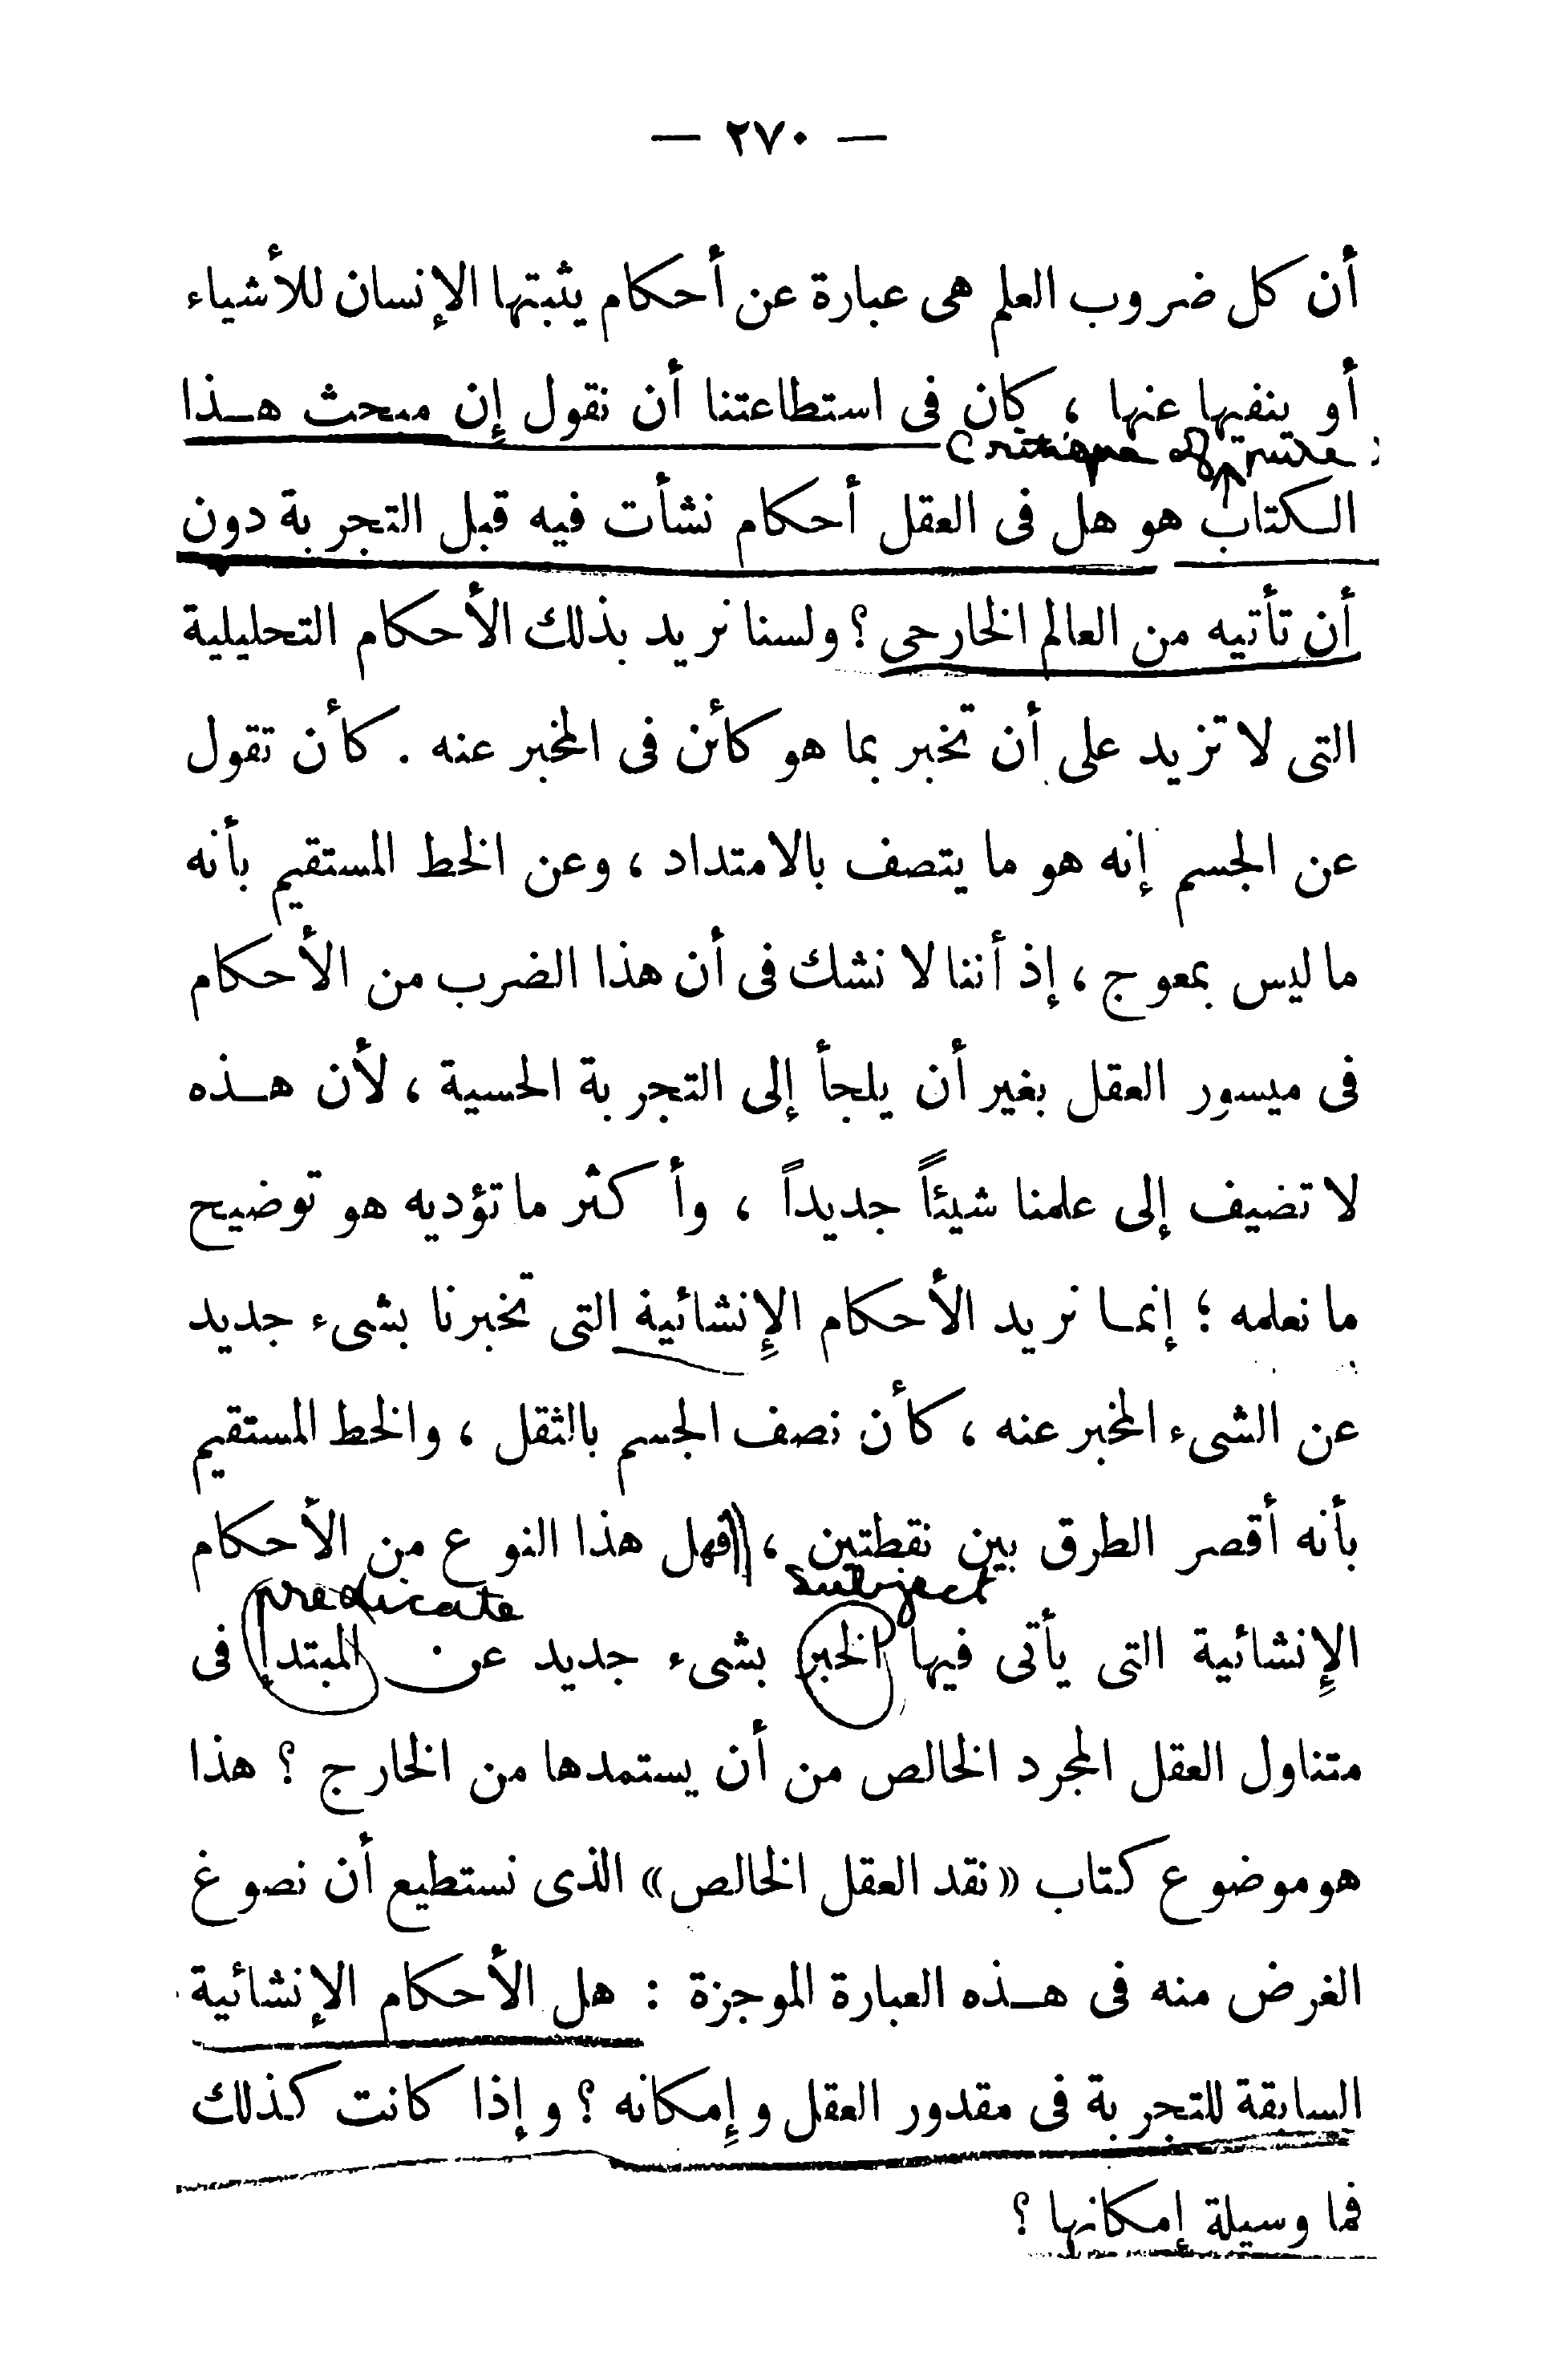 — ٢٧٠ —
أن كل ضروب العلم هى عبارة عن أحكام يثبتها الإنسان للأشياء
أو ينفيها عنها ، كان فى استطاعتنا أن نقول إن مبحث هـذا
Critique of pure
الـكتاب هو هل فى العقل أحكام نشأت فيه قبل التجربة دون
أن تأتيه من العالم الخارجى ؟ ولسنا نريد بذلك الأحكام التحليلية
التى لا تزيد على أن تخبر بما هو كائن فى المخبر عنه . كأن تقول
عن الجسم إنه هو ما يتصف بالامتداد ، وعن الخط المستقيم بأنه
ما ليس بمعوج ، إذ أننا لا نشك فى أن هذا الضرب من الأحكام
فى ميسور العقل بغير أن يلجأ إلى التجربة الحسية ، لأن هـذه
لا تضيف إلى علمنا شيئاً جديداً ، وأكثر ما تؤديه هو توضيح
ما نعلمه ؛ إنمـا نريد الأحكام الإنشائية التى تخبرنا بشىء جديد
عن الشىء المخبر عنه ، كأن نصف الجسم بالثقل ، والخط المستقيم
بأنه أقصر الطرق بين نقطتين ، فهل هذا النوع من الأحكام
subject predicate
الإنشائية التى يأتى فيها الخبر بشىء جديد عن المبتدإ فى
متناول العقل المجرد الخالص من أن يستمدها من الخارج ؟ هذا
هو موضوع كتاب «نقد العقل الخالص» الذى نستطيع أن نصوغ
الغرض منه فى هـذه العبارة الموجزة : هل الأحكام الإنشائية
السابقة للتجربة فى مقدور العقل وإمكانه ؟ وإذا كانت كذلك
فما وسيلة إمكانها ؟